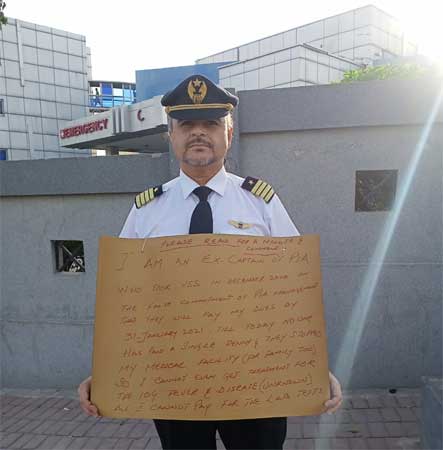 EMERGENCY C
PLEASE READ FOR A MINUTE &
COMMENT
I AM AN EX-CAPTAIN OF PIA
WHO TOOK VSS IN DECEMBER 2020 ON
THE FALSE COMMITMENT OF PIA MANAGEMENT
THAT THEY WILL PAY MY DUES BY
31 JANUARY 2021. TILL TODAY NO ONE
HAS PAID A SINGLE PENNY & THEY STOPPED
MY MEDICAL FACILITY (FOR FAMILY TOO)
SO I CANNOT EVEN GET TREATMENT FOR
THE 104 FEVER & DISEASE (UNKNOWN)
AS I CANNOT PAY FOR THE LAB TESTS